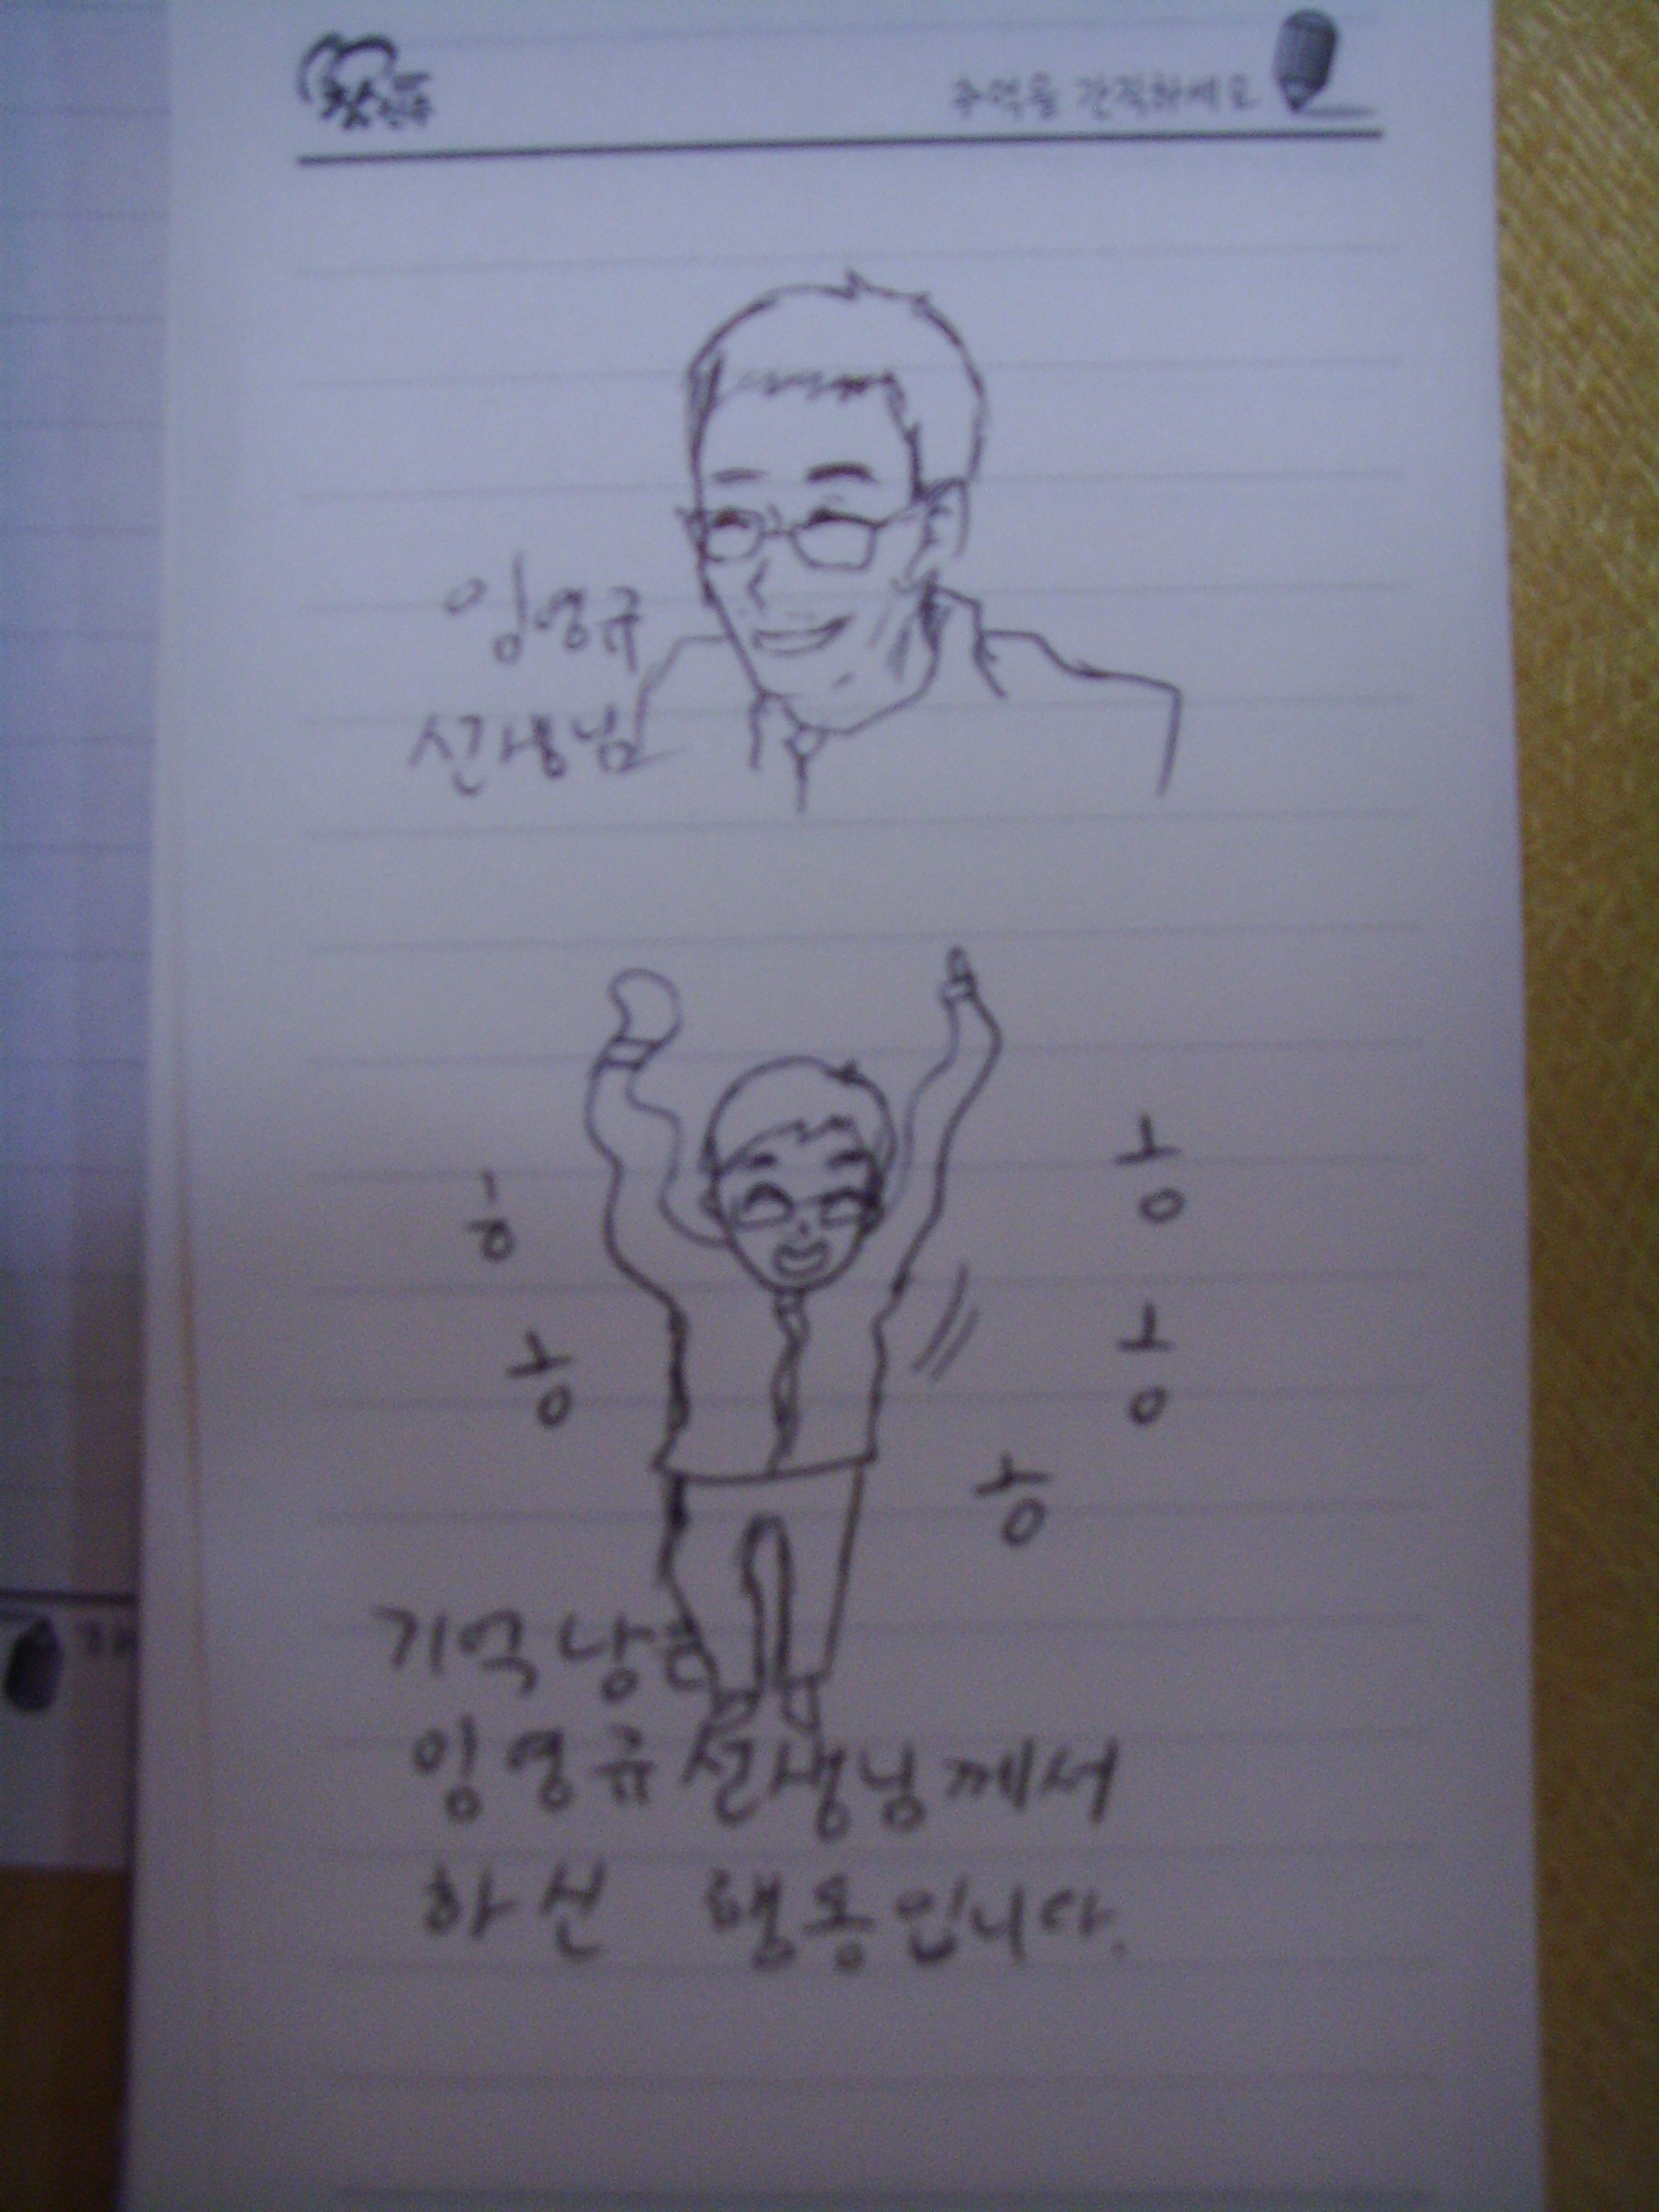 추억을 간직하세요
임영규
선생님
ㅎ
ㅎ
ㅎ
ㅎ
ㅎ
기억 남는
임영규선생님께서
하신 행동입니다.